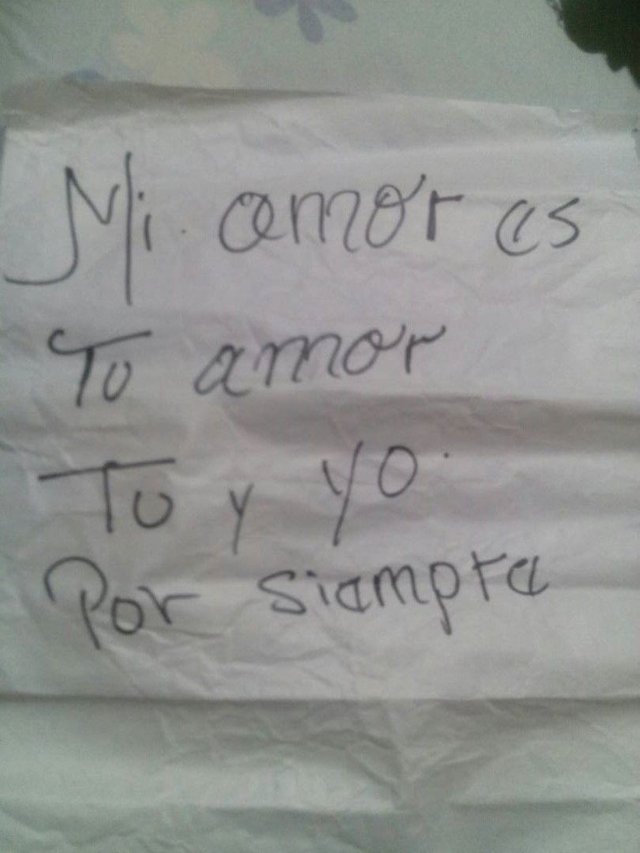 Mi amor es
Tu amor
Tu y yo
Por siempre